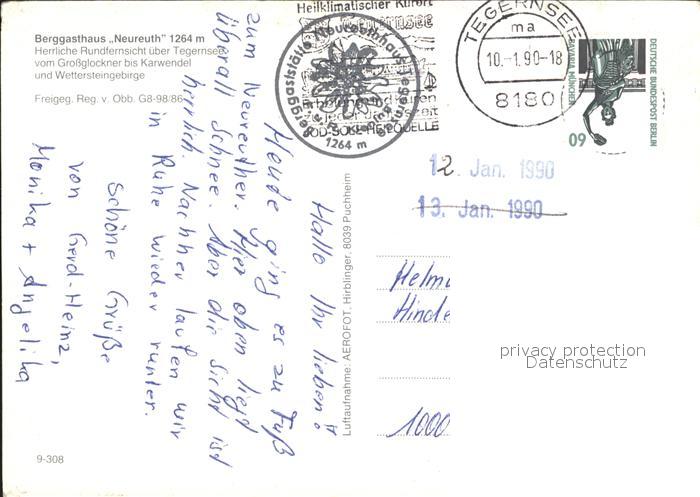 Berggasthaus „Neureuth" 1264 m
Herrliche Rundfernsicht über Tegernsee
vom Großglockner bis Karwendel
und Wettersteingebirge
Freigeg. Reg. v. Obb. G8-98/86
Heilklimatischer Kurort
Tegernsee
JOD-SOLE-HEILQUELLE
Berggaststätte Neureuthhaus Tegernsee
1264 m
TEGERNSEE
ma
10.-1.90-18
8180
DEUTSCHE BUNDESPOST BERLIN
BAVARIA MÜNCHEN
60
12. Jan. 1990
13. Jan. 1990
Hallo Ihr lieben!
Heute ging es zu Fuß
zum Neureuther. Hier oben liegt
überall Schnee. Aber die Sicht ist
herrlich. Nachher laufen wir
in Ruhe wieder runter.
Schöne Grüße
von Gerd-Heinz,
Monika + Angelika
Luftaufnahme: AEROFOT, Hirblinger, 8039 Puchheim
Helmu
Hinde
1000
privacy protection
Datenschutz
9-308